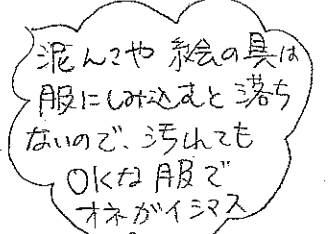 泥んこや 絵の具は
服にしみ込むと 落ち
ないので、汚れても
OKな 服で
オネガイシマス